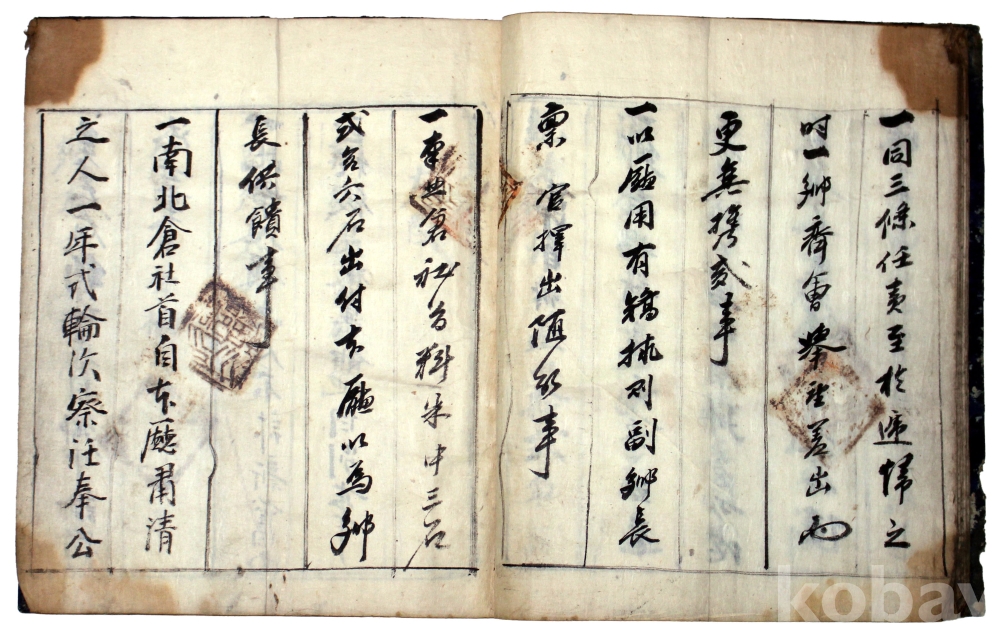 一同三條任責至於遞歸之
時一鄉齊會 望差出而
更無携貳事
一以廳用有 則副鄉長
稟 官擇出 事
一東 倉社首料米中三石
式合六石出付本廳以爲鄉
長供饋事
一南北倉社首自本廳肅清
之人一年式輪次察任奉公
kobay